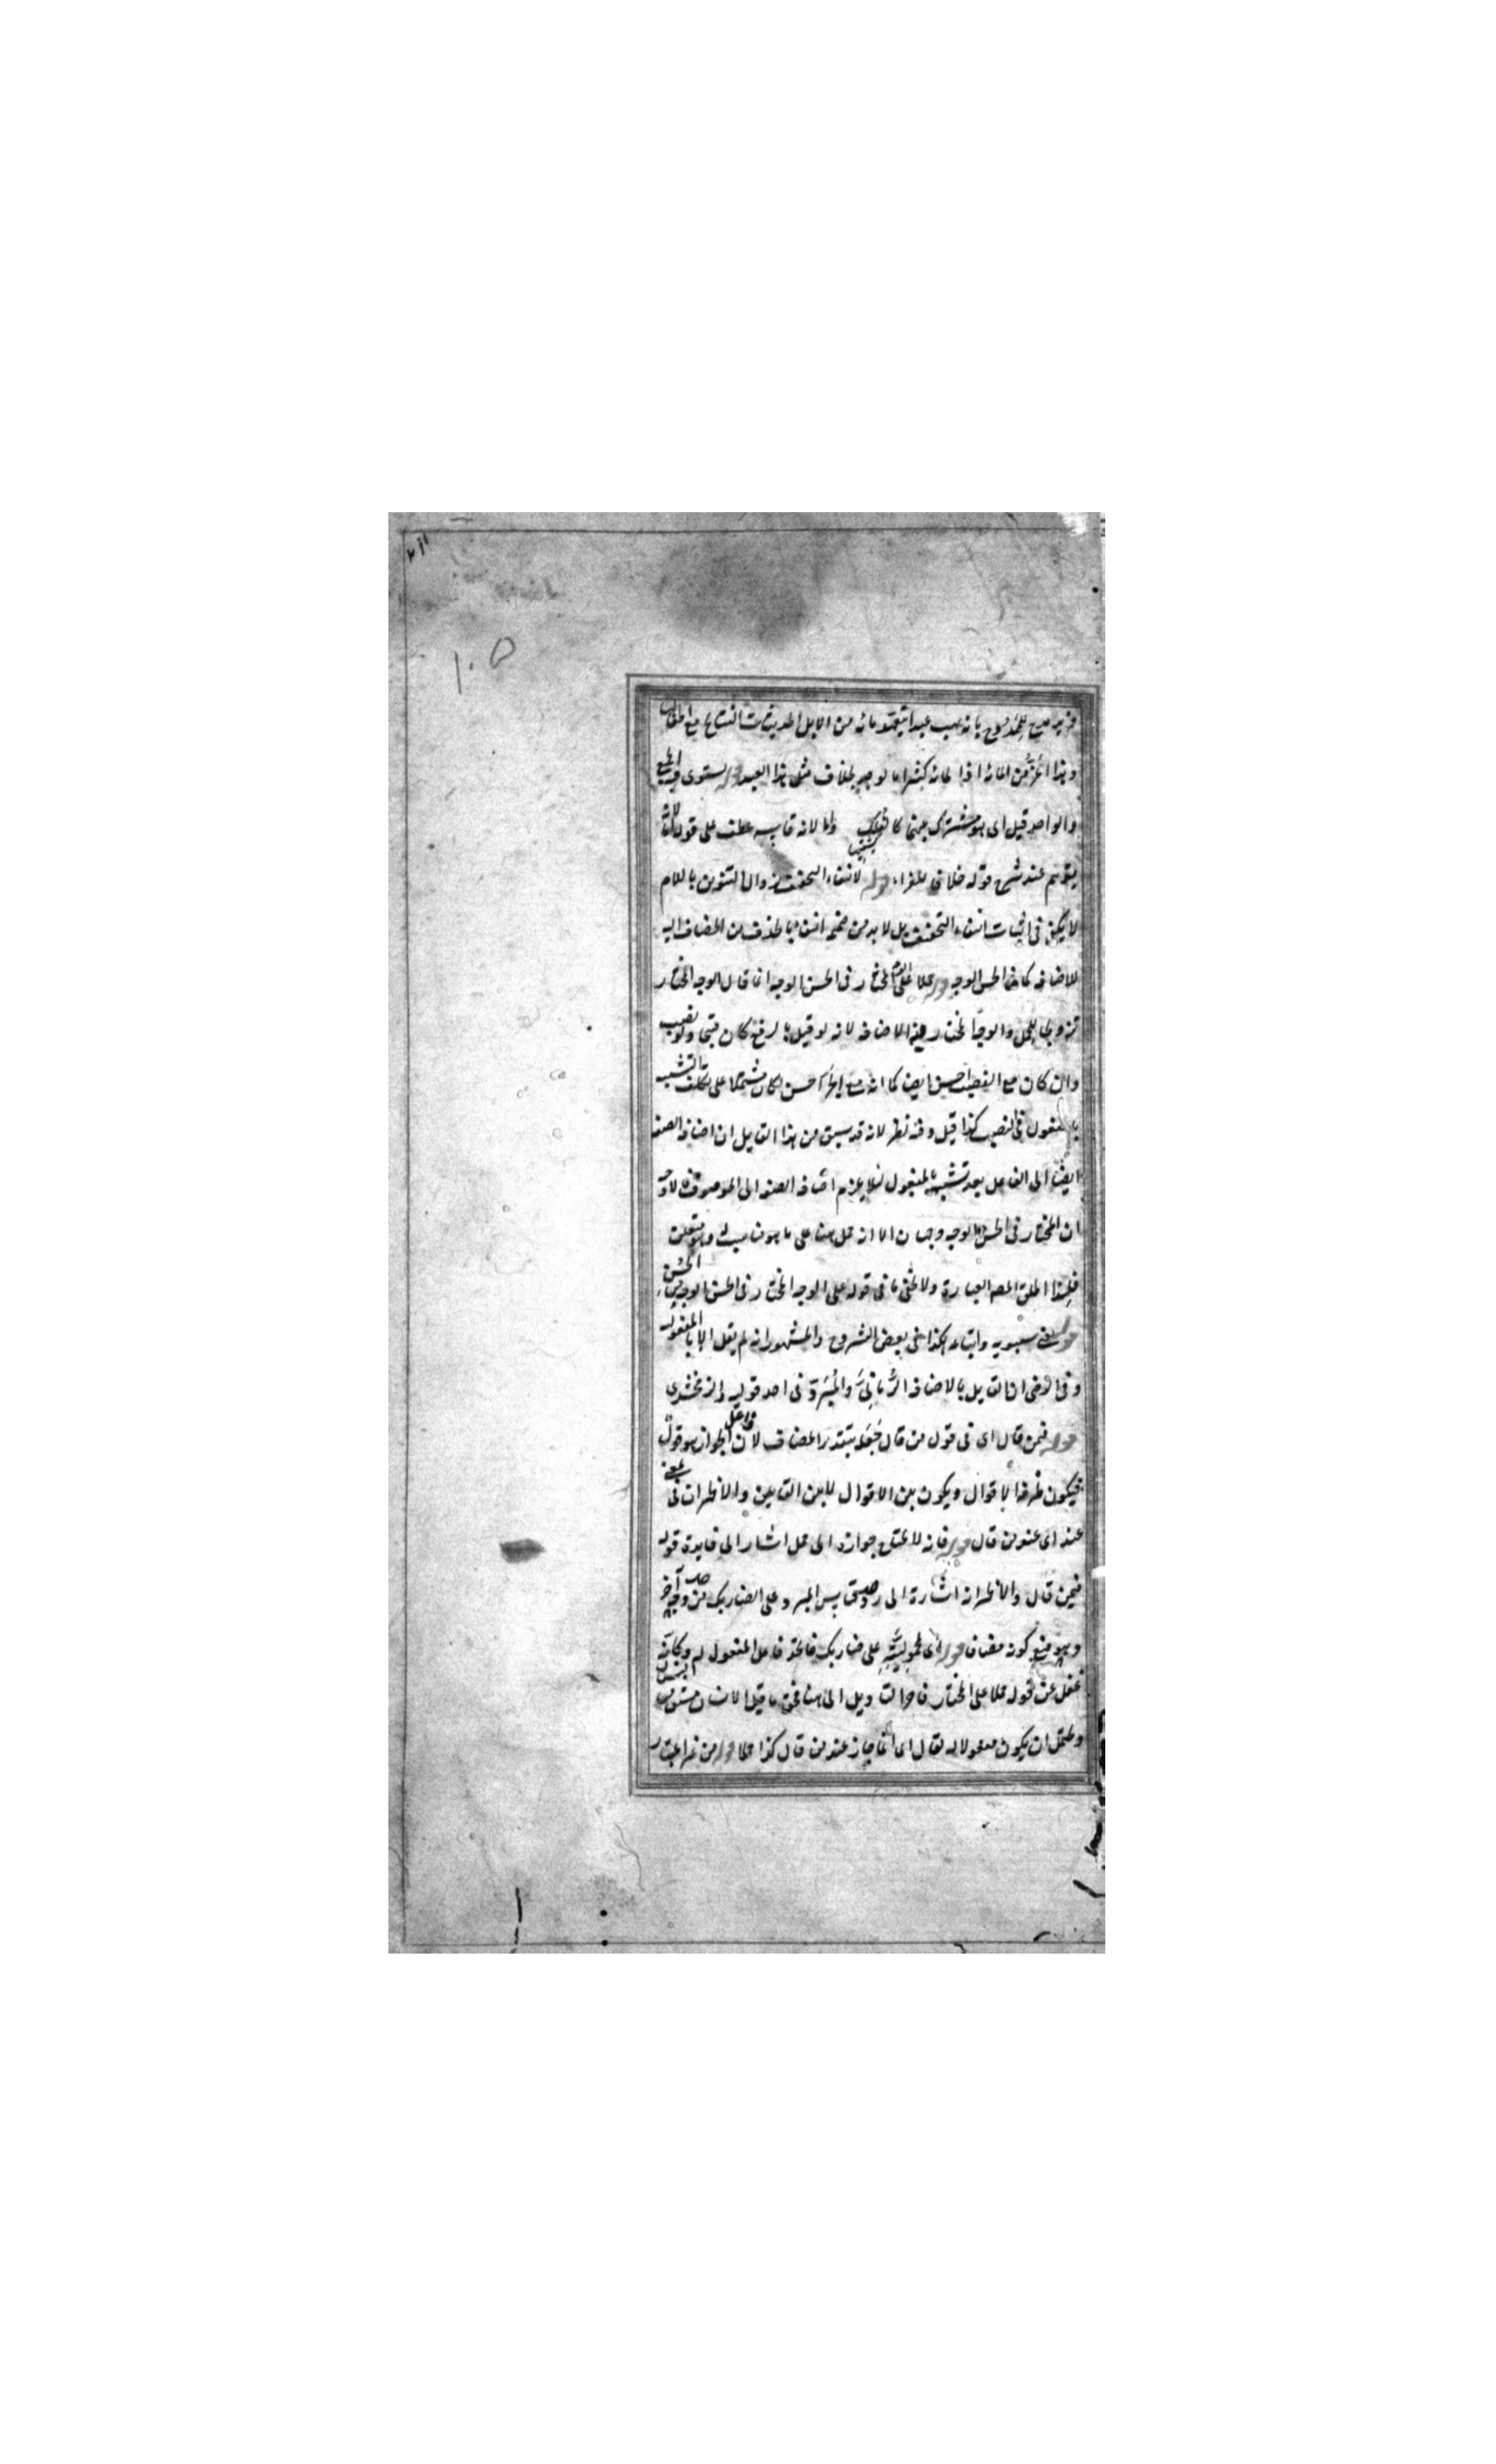 ١٠٥
مزيد مدح للممدوح بانه يهب عبدا يتعهد مائة من الابل الحديثات النتاج مع اطفالها
وهذا اعز من المائة اذ المائة كثيرا ما يوجد بخلاف مثل هذا العبد قوله يستوى فيه الجمع
والواحد قيل اى هو مشترك بينهما كالفلك واما لانه قاسه عطف على قوله اما لانه
يتوهم عند شرح قوله خلافا للفراء قوله لانتفاء التخفيف زوال التنوين باللام
لا يكفى فى اثبات انتفاء التخفيف بل لابد من ضم انتفاء ما يحذف من المضاف اليه
للاضافة كما فى الحسن الوجه قوله حملا على المختار فى الحسن الوجه انما قال الوجه المختار
ترويجا للحمل والوجه المختار هنا الاضافة لانه لو قيل بالرفع كان قبيحا ولو نصب
وان كان مع النصب احسن ايضا كما انه مع الجر احسن لكان مشتملا على تكلف التشبيه
بالمفعول فى النصب كذا قيل وفيه نظر لانه قد سبق من هذا القايل ان اضافة الصفة
ايضا الى الفاعل بعد تشبيهه بالمفعول لئلا يلزم اضافة الصفة الى الموصوف فالاوجه
ان المختار فى الحسن الوجه وجهان الا انه حمل هنا على ما هو مناسبه وهو متعين
فلهذا اطلق المصنف العبارة ولا يخفى ما فى قوله على الوجه المختار فى الحسن الوجه من الحسن
قوله يعنى سيبويه واتباعه هكذا فى بعض الشروح والمشهور انه لم يقل الا بالمفعولية
وفى الرضى ان القايل بالاضافة الرمانى والمبرد فى احد قوليه والزمخشرى
قوله فيمن قال اى فى قول من قال جعله بتقدير المضاف لان فاعل الجواز هو قول
فيكون ظرفه الاقوال ويكون بين الاقوال لا بين القايلين والاظهر ان فى بمعنى
عند اى عند من قال قوله فانه لا يحتاج جوازه الى حمل اشار الى فايدة قوله
فيمن قال والاظهر انه اشارة الى رد صحة قياس المبرد على الضاربك من وجه آخر
وهو منع كونه مضافا قوله اى لمحموليته على ضاربك فاتحد فاعل المفعول له وكانه
غفل عن قوله حملا على المختار فاحوج التاويل الى هنا فحق ما قيل الانسان مشتق من
ويحتمل ان يكون معمولا له لقال اى انما جاز عند من قال كذا حملا قوله من غير اعتبار